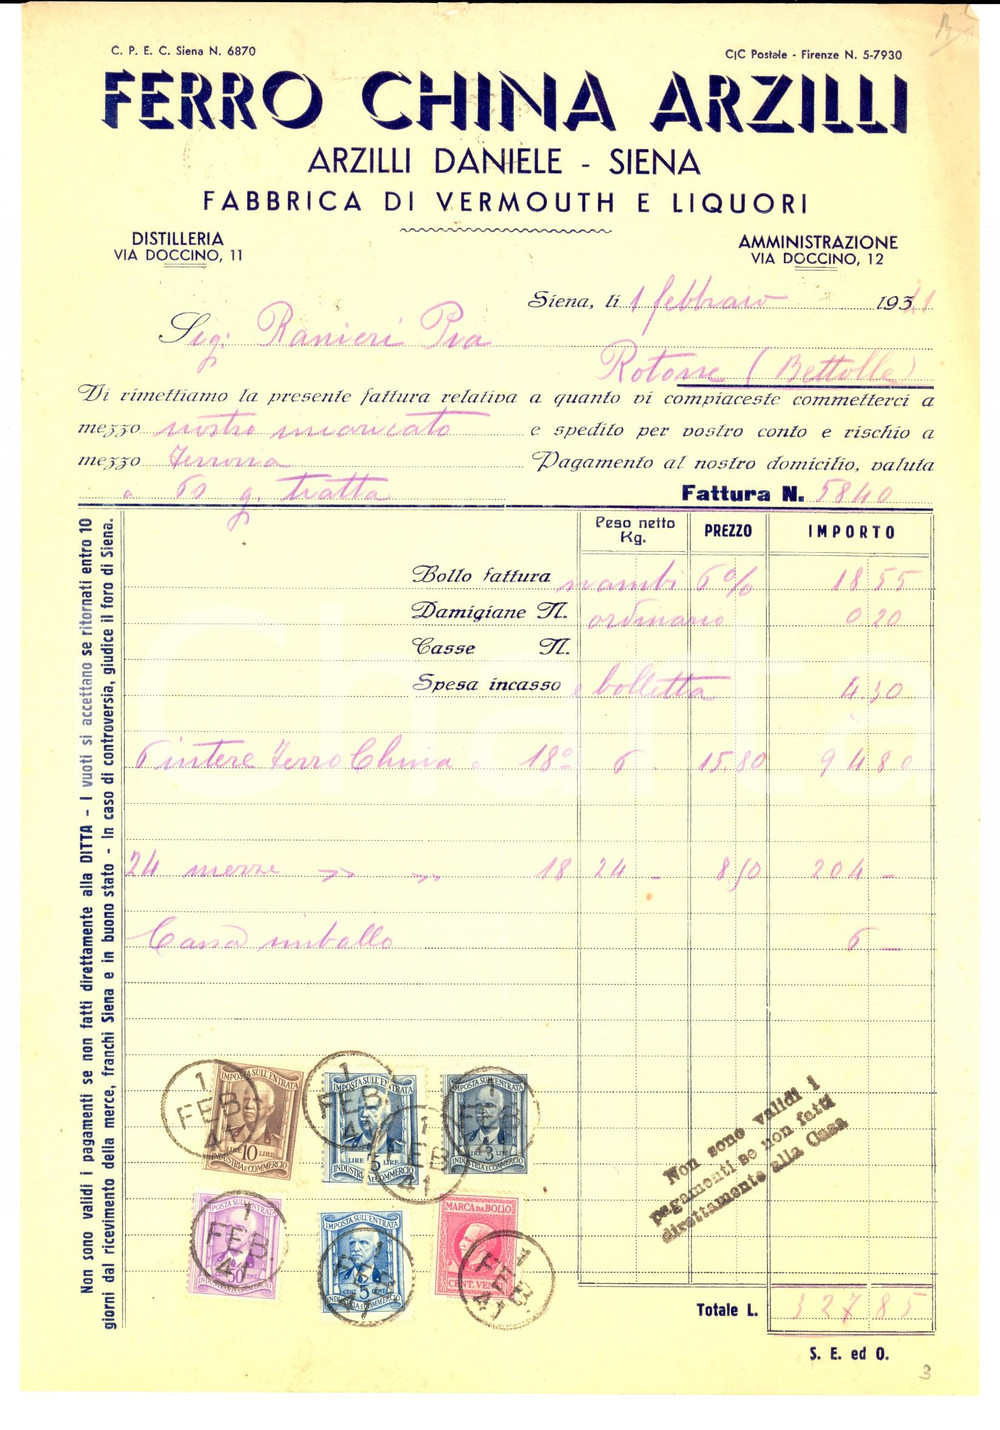 C. P. E. C. Siena N. 6870
C|C Postale - Firenze N. 5-7930
FERRO CHINA ARZILLI
ARZILLI DANIELE - SIENA
FABBRICA DI VERMOUTH E LIQUORI
DISTILLERIA
VIA DOCCINO, 11
AMMINISTRAZIONE
VIA DOCCINO, 12
Siena, li 1 febbraio 1941
Sig: Ranieri Pia
(Bettolle)
Vi rimettiamo la presente fattura relativa a quanto vi compiaceste commetterci a
mezzo nostro incaricato e spedito per vostro conto e rischio a
mezzo Ferrovia Pagamento al nostro domicilio, valuta
a 60 g. tratta Fattura N. 5840
Peso netto Kg. PREZZO IMPORTO
Bollo fattura 6% 18 55
Damigiane N. ordinario 0 20
Casse N.
Spesa incasso e bolletta 4 30
6 intere Ferro China a 18° 6 15 80 94 80
24 mezze " " 18 24 - 8 50 204 -
Cassa imballo 6 -
Non sono validi i pagamenti se non fatti direttamente alla DITTA - I vuoti si accettano se ritornati entro 10
giorni dal ricevimento della merce, franchi Siena e in buono stato - In caso di controversia, giudice il foro di Siena.
1 FEB 41
IMPOSTA SULL'ENTRATA
LIRE 10 LIRE
INDUSTRIA E COMMERCIO
1 FEB 41
IMPOSTA SULL'ENTRATA
LIRE 5 LIRE
INDUSTRIA E COMMERCIO
1 FEB 41
IMPOSTA SULL'ENTRATA
3
INDUSTRIA E COMMERCIO
1 FEB 41
IMPOSTA SULL'ENTRATA
50
INDUSTRIA E COMMERCIO
1 FEB 41
IMPOSTA SULL'ENTRATA
CENT. 5 CENT.
INDUSTRIA E COMMERCIO
MARCA DA BOLLO
CENT. VENTI
1 FEB 41
Non sono validi i
pagamenti se non fatti
direttamente alla Casa
Totale L. 327 85
S. E. ed O.
3